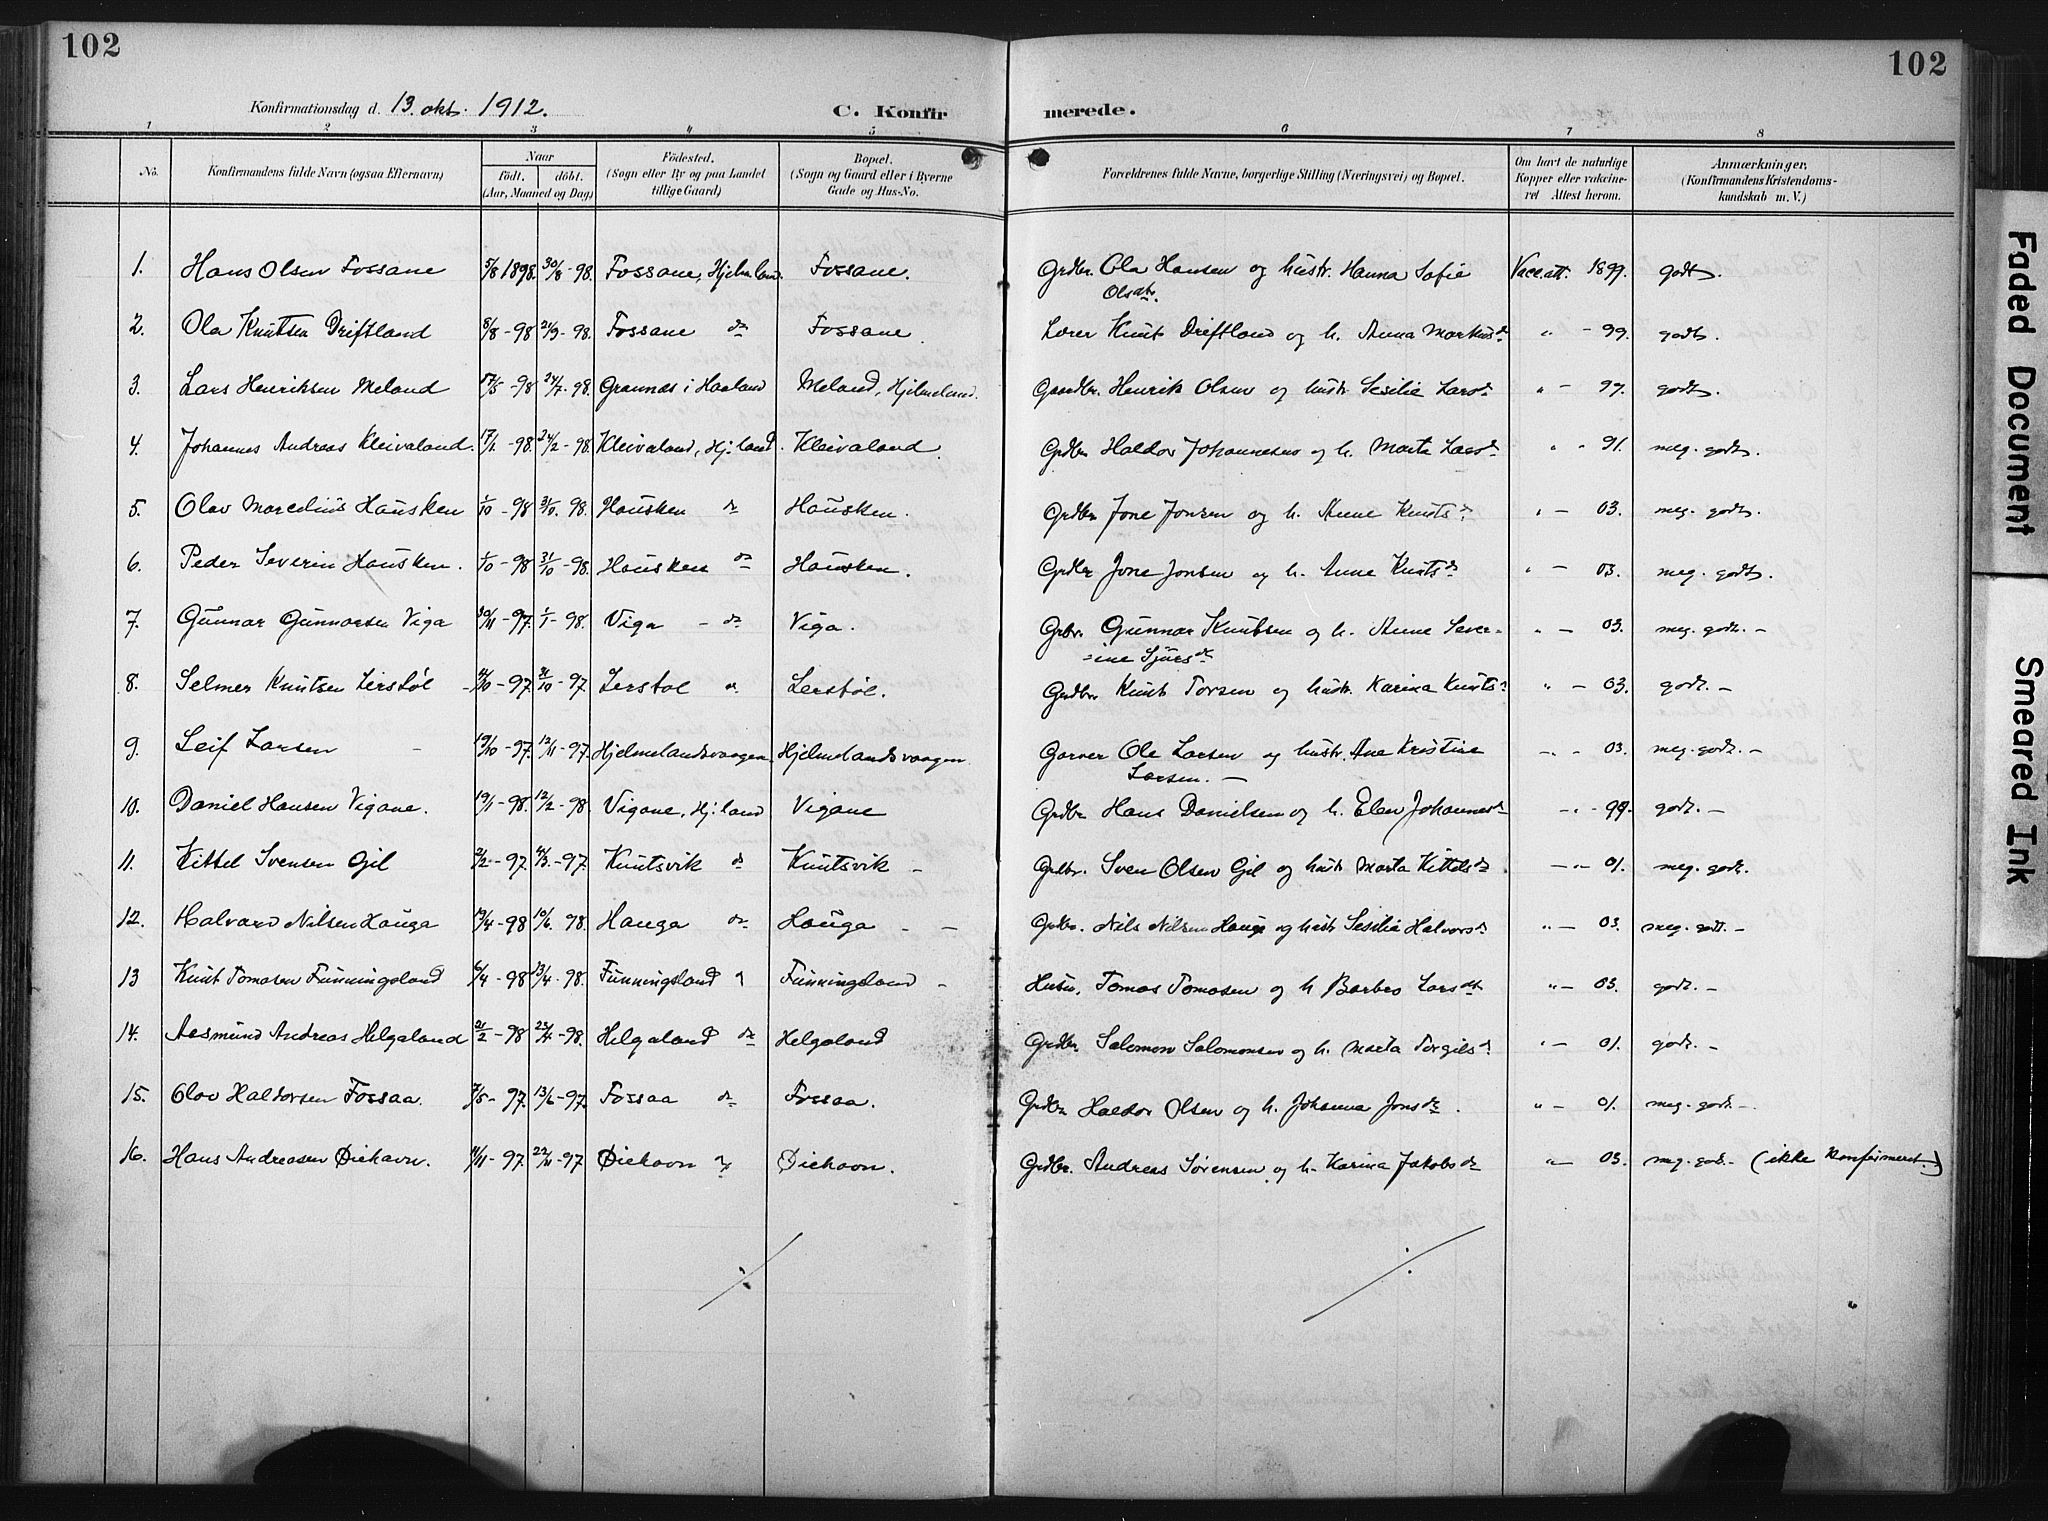 102
102
Konfirmationsdag d. 13. okt. 1912.
C. Konfirmerede.
1 2 3 4 5 6 7 8
No.
Konfirmandens fulde Navn (ogsaa Efternavn)
Naar
født. døbt.
(Aar, Maaned og Dag)
Fødested.
(Sogn eller By og paa Landet
tillige Gaard)
Bopæl.
(Sogn og Gaard eller i Byerne
Gade og Hus-No.
Forældrenes fulde Navne, borgerlige Stilling (Næringsvei) og Bopæl.
Om havt de naturlige
Kopper eller vakcine-
ret Attest herom.
Anmærkninger.
(Konfirmandens Kristendoms-
kundskab m. V.)
1. Hans Olsen Fossane 5/8 1898. 30/8 - 98. Fossane, Hjelmeland. Fossane. Grdbr. Ola Hansen og hustr. Hanna Sofie Vacc.att. 1899. godt.
Olsdtr.
2. Ola Knutsen Driftland 8/8 - 98 21/9 - 98. Fossane do Fossane. Lærer Knut Driftland og h. Anna Markusd " - 99. godt.
3. Lars Henriksen Meland 17/5 - 98 24/7 - 98. Grannes i Haaland Meland, Hjelmeland. Gaardbr. Henrik Olsen og hustr. Sesilie Larsd " - 97. godt.
4. Johannes Andreas Kleivaland. 17/1 - 98. 24/2 - 98. Kleivaland, Hj.land. Kleivaland. Grdbr Haldor Johannesen og h. Marta Larsd " " 91. meg. godt.
5. Olav Marcelius Hausken 1/10 - 98 31/10. 98. Hausken do Hausken. Grdbr Jone Jonsen og h. Anne Knutsd. " - 03. meg. godt.
6. Peder Severin Hausken. 1/10 - 98 31/10 - 98. Hausken do Hausken. Grdbr Jone Jonsen og h. Anne Knutsd " - 03. meg. godt.
7. Gunnar Gunnarsen Viga 30/11 - 97. 1/1 - 98. Viga - do Viga. Grbr. Gunnar Knutsen og h. Anne Sever- " - 03. meg. godt. -
=ine Sjursd
8. Selmer Knutsen Lerstøl - 97. 31/10 - 97. Lerstøl do Lerstøl. Grdbr. Knut Torsen og hustr. Karina Knutsd " - 03. godt. -
9. Leif Larsen - 19/10 - 97. 12/11 - 97. Hjelmelandsvaagen Hjelmelandsvaagen. Garver Ole Larsen og hustr. Ane Kristine -" - 03. meg. godt. -
Larsen. -
10. Daniel Hansen Vigane. 19/1 - 98. 12/2 - 98. Vigane, Hj.land Vigane Grdbr Hans Danielsen og h. Elen Johannesd -" - 99. godt. -
11. Kittel Svensen Gil 2/2 - 97. 4/3. - 97. Knutsvik do Knutsvik - Grdbr. Sven Olsen Gil og hustr Marta Kittelsd. - " - 01. meg. godt.
12. Halvard Nilsen Hauga 19/4 - 98 10/6. 98. Hauga do Hauga - - Grdbr. Nils Nilsen Hauge og hustr Sesilie Halvorsd " - 03. meg. godt. -
13 Knut Tomasen Funningsland 6/4 - 98 13/4 - 98. Funningsland " Funningsland - Husm. Tomas Tomasen og h Barbro Larsdt " - 03. godt. -
14. Aasmund Andreas Helgaland 21/2 - 98 23/4 - 98. Helgaland do Helgaland Grdbr Salomon Salomonsen og h. Marta Torgilsd. " - 01. godt. -
15. Olav Haldorsen Fossaa. 7/5 - 97. 13/6 - 97. Fossaa do Fossaa. Grdbr Haldor Olsen og h. Johanna Jonsdtr. " - 01. meg. godt. -.
16. Hans Andreasen Øiehavn. 11/11 - 97. 22/11 - 97 Øiehavn " Øiehavn. Grdbr. Andreas Sørensen og h. Karina Jakobsd " - 03. meg. godt. - (ikke konfirmeret.)
Faded Document
Smeared Ink